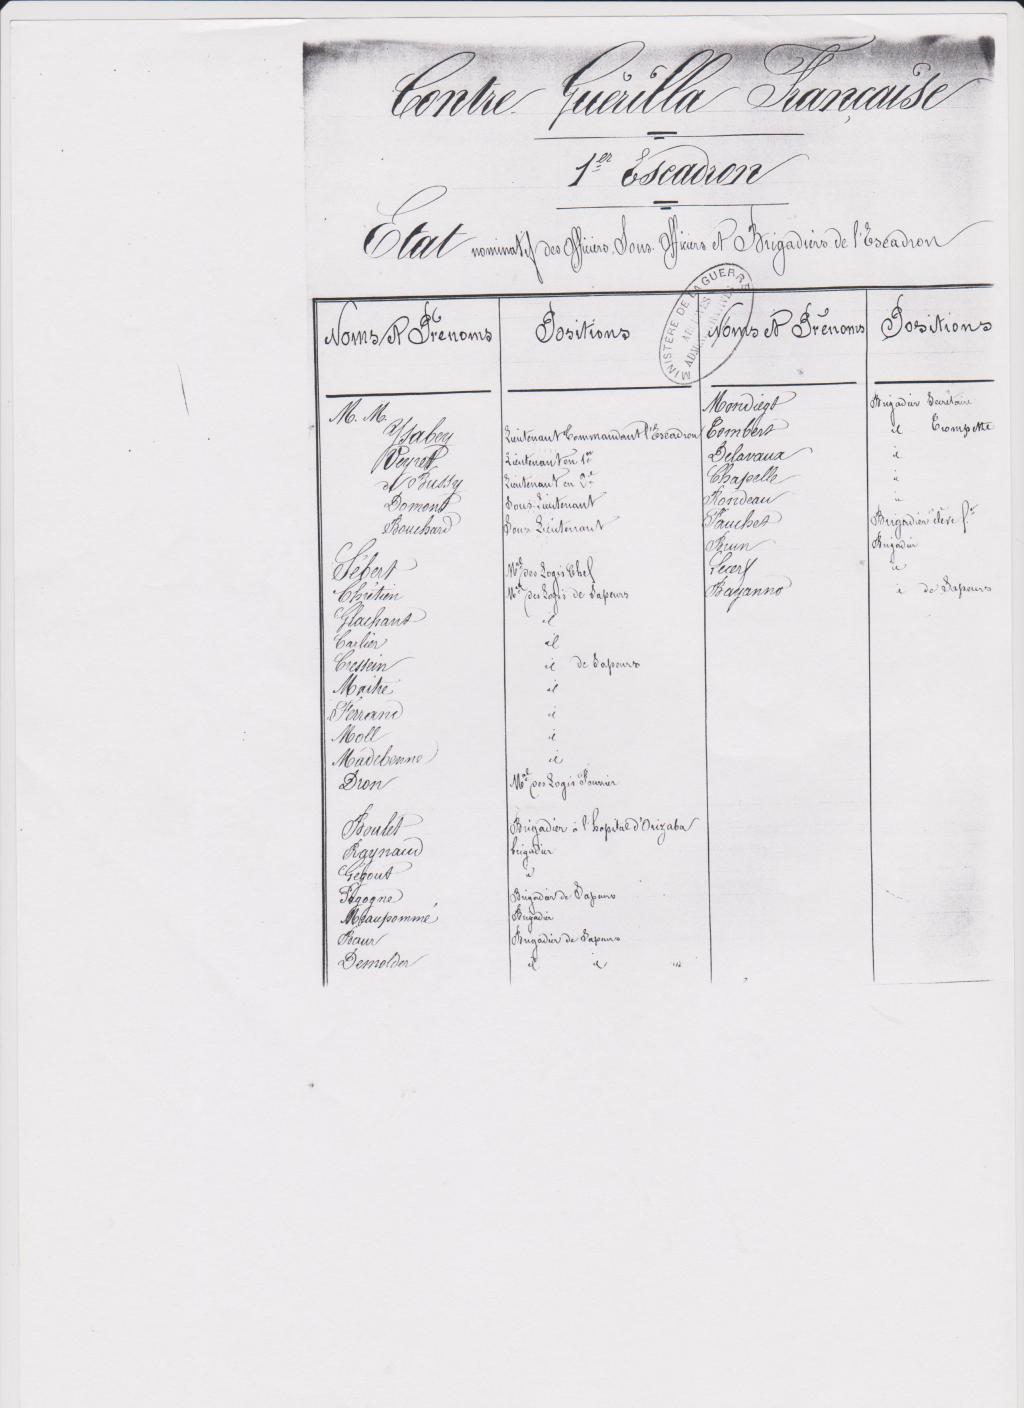 Contre Guérilla Française
1er Escadron
Etat nominatif des Officiers Sous-Officiers et Brigadiers de l'Escadron
MINISTÈRE DE LA GUERRE
ARCHIVES ADMINISTRATIVES
Noms et Prénoms Positions
M. M.
Ysabey Lieutenant Commandant l'Escadron
Peyret Lieutenant en 1er
de Bussy Lieutenant en 2e
Domont Sous-Lieutenant
Bouchard Sous Lieutenant
Sébert Mal des Logis Chef
Chrétien Mal des Logis de Sapeurs
Glachant id
Carlier id
Cressein id de Sapeurs
Maitre id
Ferrand id
Moll id
Madebenne id
Dron Mal des Logis Fourrier
Boulet Brigadier à l'hopital d'Orizaba
Raynaud brigadier
Gégout id
Gigogne Brigadier de Sapeurs
Maupommé Brigadier
Baur Brigadier de Sapeurs
Demolder id id "
Noms et Prénoms Positions
Mondiégt Brigadier Secrétaire
Combert id Trompette
Delavaux id
Chapelle id
Rondeau id
Fauchet Brigadier élève fr
Brun Brigadier
Lecerf id
Bayanno id de Sapeurs